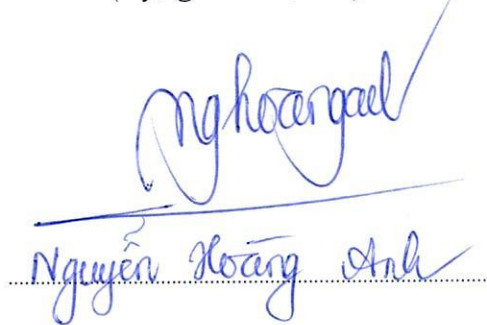 Nghoàng
Nguyễn Hoàng Anh